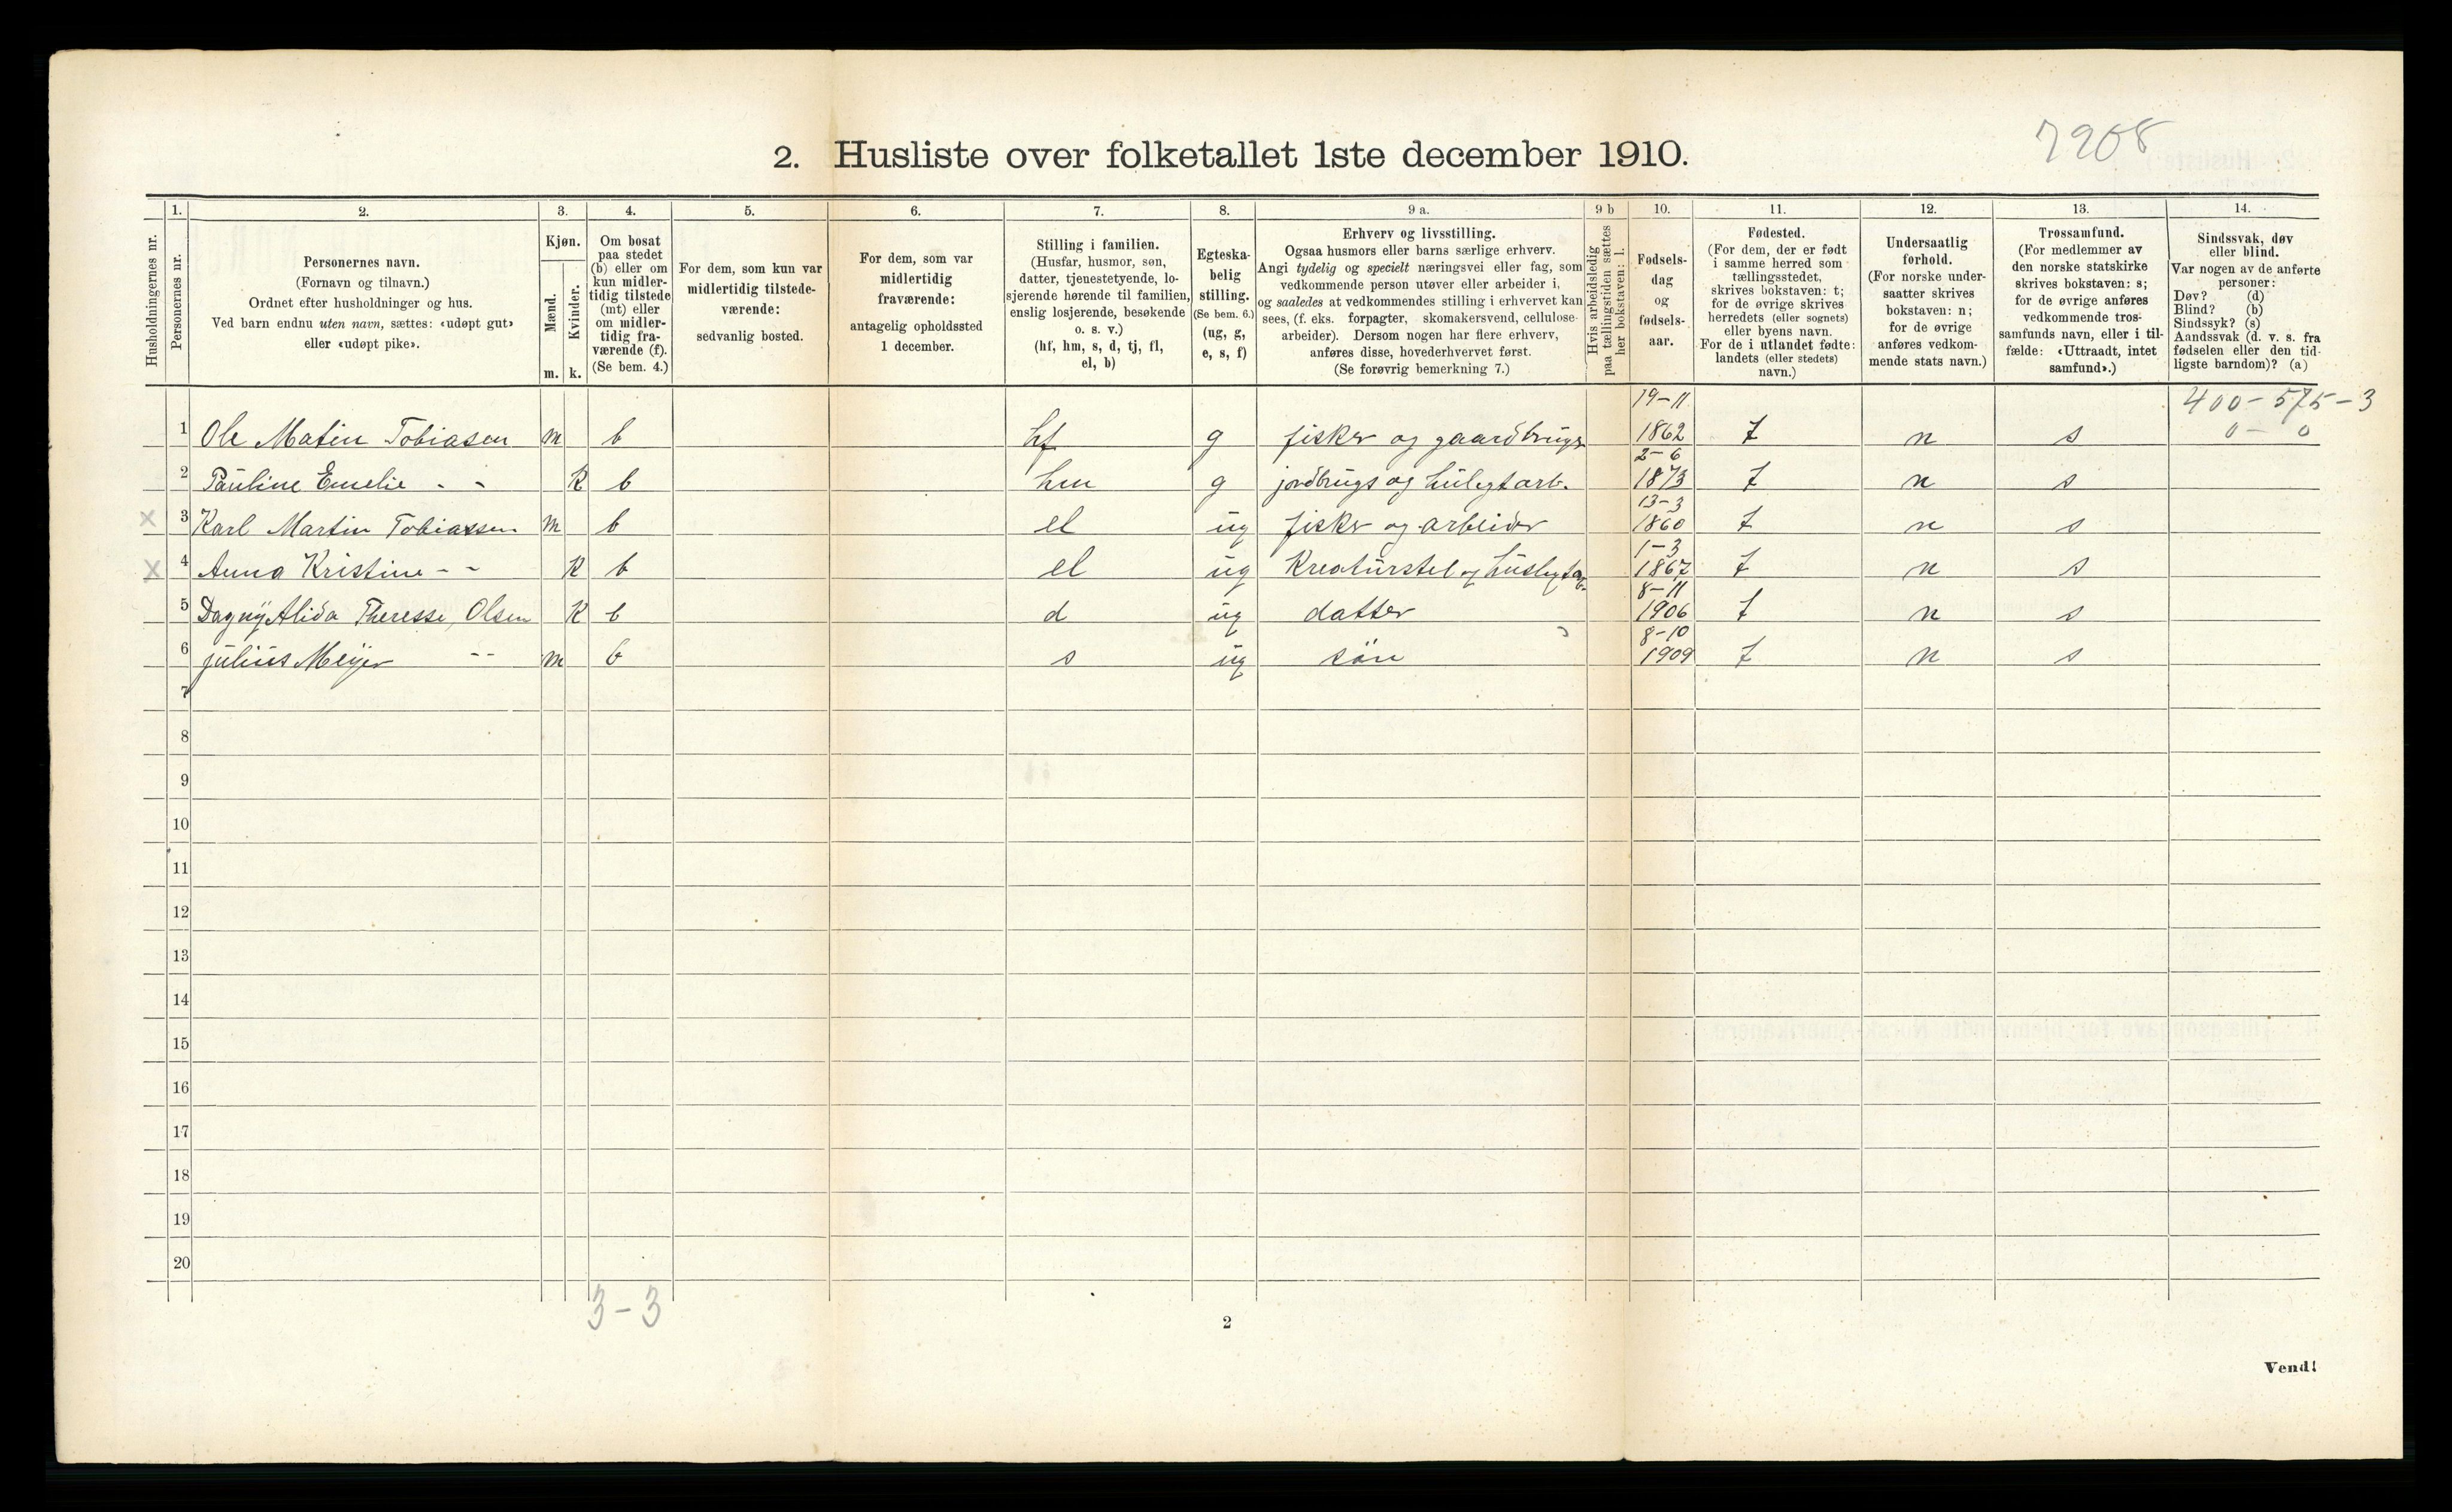 7208
2. Husliste over folketallet 1ste december 1910.
Husholdningernes nr.
1.
Personernes nr.
2.
Personernes navn.
(Fornavn og tilnavn.)
Ordnet efter husholdninger og hus.
Ved barn endnu uten navn, sættes: «udøpt gut»
eller «udøpt pike».
3.
Kjøn.
Mænd.
Kvinder.
m. k.
4.
Om bosat
paa stedet
(b) eller om
kun midler-
tidig tilstede
(mt) eller
om midler-
tidig fra-
værende (f).
(Se bem. 4.)
5.
For dem, som kun var
midlertidig tilstede-
værende:
sedvanlig bosted.
6.
For dem, som var
midlertidig
fraværende:
antagelig opholdssted
1 december.
7.
Stilling i familien.
(Husfar, husmor, søn,
datter, tjenestetyende, lo-
sjerende hørende til familien,
enslig losjerende, besøkende
o. s. v.)
(hf, hm, s, d, tj, fl,
el, b)
8.
Egteska-
belig
stilling.
(Se bem. 6.)
(ug, g,
e, s, f)
9 a.
Erhverv og livsstilling.
Ogsaa husmors eller barns særlige erhverv.
Angi tydelig og specielt næringsvei eller fag, som
vedkommende person utøver eller arbeider i,
og saaledes at vedkommendes stilling i erhvervet kan
sees, (f. eks. forpagter, skomakersvend, cellulose-
arbeider). Dersom nogen har flere erhverv,
anføres disse, hovederhvervet først.
(Se forøvrig bemerkning 7.)
9 b
Hvis arbeidsledig
paa tællingstiden sættes
her bokstaven: l.
10.
Fødsels-
dag
og
fødsels-
aar.
11.
Fødested.
(For dem, der er født
i samme herred som
tællingsstedet,
skrives bokstaven: t;
for de øvrige skrives
herredets (eller sognets)
eller byens navn.
For de i utlandet fødte:
landets (eller stedets)
navn.)
12.
Undersaatlig
forhold.
(For norske under-
saatter skrives
bokstaven: n;
for de øvrige
anføres vedkom-
mende stats navn.)
13.
Trossamfund.
(For medlemmer av
den norske statskirke
skrives bokstaven: s;
for de øvrige anføres
vedkommende tros-
samfunds navn, eller i til-
fælde: «Uttraadt, intet
samfund».)
14.
Sindssvak, døv
eller blind.
Var nogen av de anførte
personer:
Døv? (d)
Blind? (b)
Sindssyk? (s)
Aandssvak (d. v. s. fra
fødselen eller den tid-
ligste barndom)? (a)
19-11 400-575-3
1 Ole Matin Tobiasen m b hf g fisker og gaardbruger 1862 t n s 0 - 0
2-6
2 Pauline Emelie - - k b hm g jordbrugs og huligt arb. 1873 t n s
13-3
x 3 Karl Martin Tobiassen m b el ug fisker og arbeider 1860 t n s
1-3
x 4 Anna Kristine - - k b el ug Kreaturstel og husligt arb. 1867 t n s
8-11
5 Dagny Alida Theresse, Olsen k b d ug datter 1906 t n s
8-10
6 Julius Meyer - - m b s ug søn 1909 t n s
7
8
9
10
11
12
13
14
15
16
17
18
19
20
3-3
2
Vend!